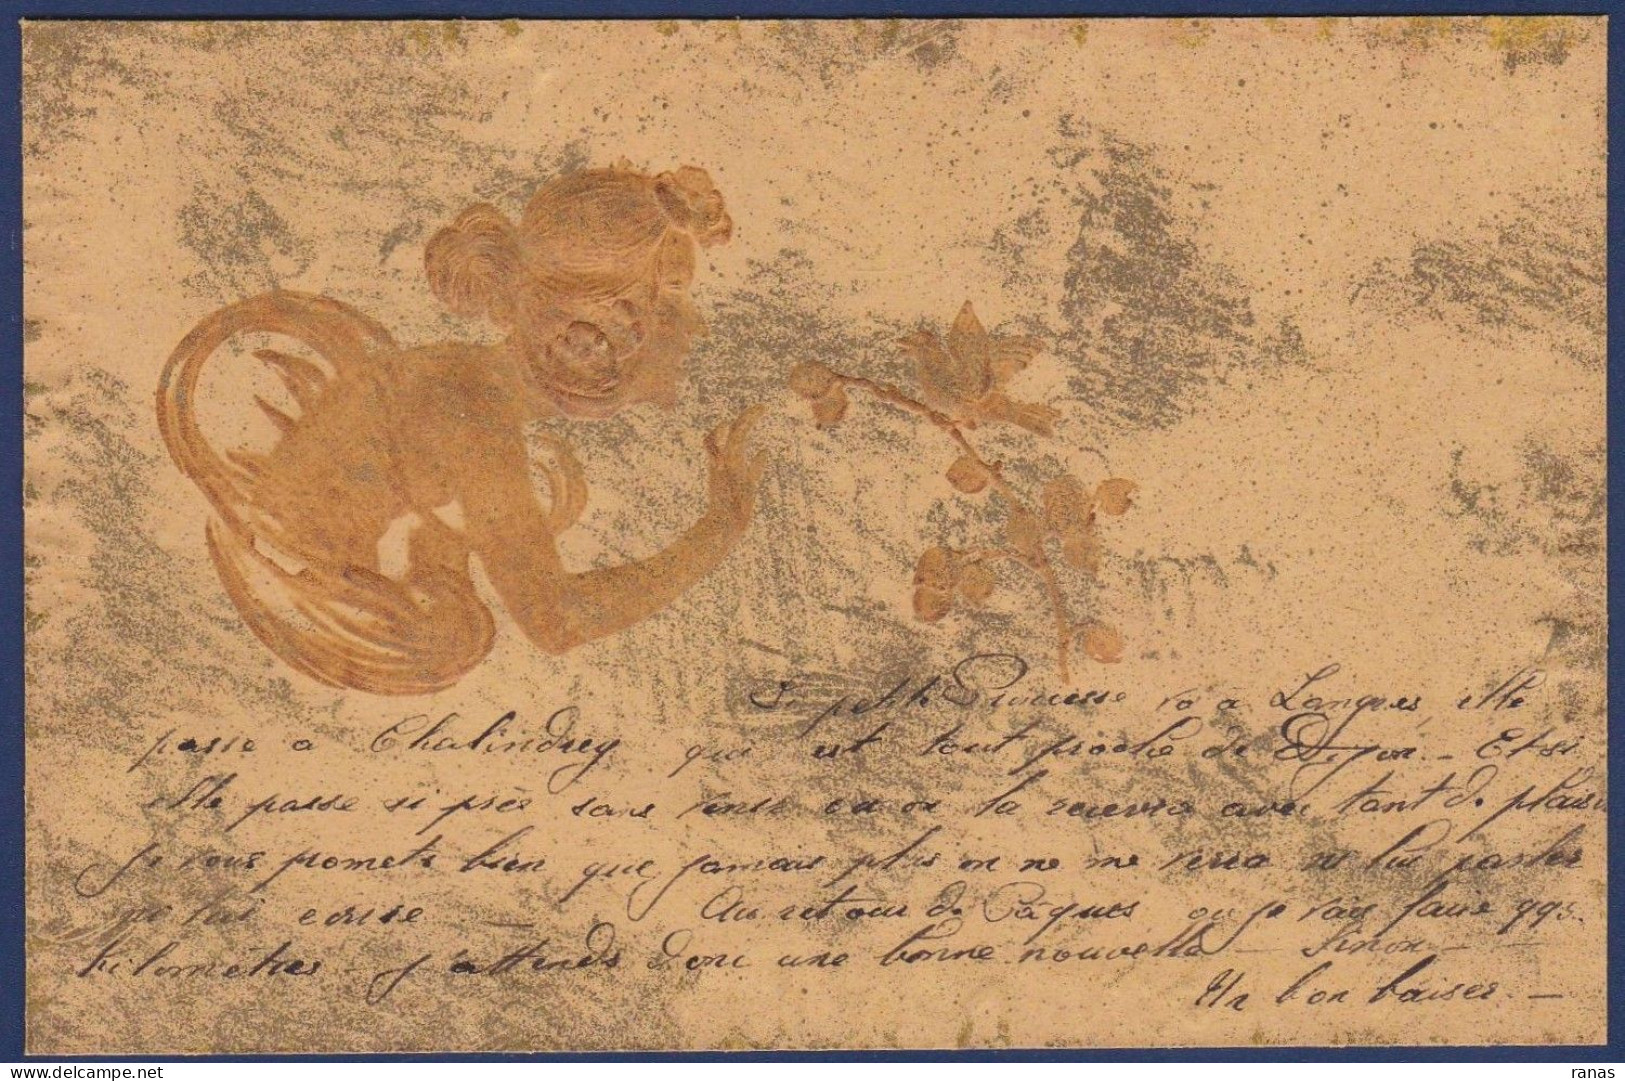 petite Princesse va à Langres, elle
passe a Chalindrey qui est tout proche de Dijon. - Et si
elle passe si près sans venir où on la recevra avec tant de plaisir
Je vous promets bien que jamais plus on ne me verra ni lui parler
ni lui écrire - Au retour de Pâques où je vais faire 995
kilomètres - J'attends donc une bonne nouvelle - Sinon -
Un bon baiser. -
ranas